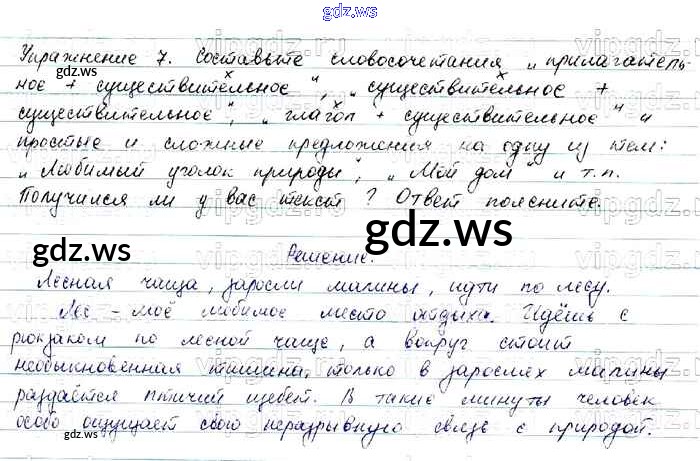 gdz.ws
Упражнение 7. Составьте словосочетания „прилагатель-
ное + существительное“, „существительное +
существительное“, „глагол + существительное“ и
простые и сложные предложения на одну из тем:
„Любимый уголок природы“, „Мой дом“ и т.п.
Получился ли у вас текст? Ответ поясните.
Решение.
Лесная чаща, заросли малины, идти по лесу.
Лес – моё любимое место отдыха. Идёшь с
рюкзаком по лесной чаще, а вокруг стоит
необыкновенная тишина, только в зарослях малины
раздаётся птичий щебет. В такие минуты человек
особо ощущает свою неразрывную связь с природой.
gdz.ws
gdz.ws
gdz.ws
gdz.ws
gdz.ws